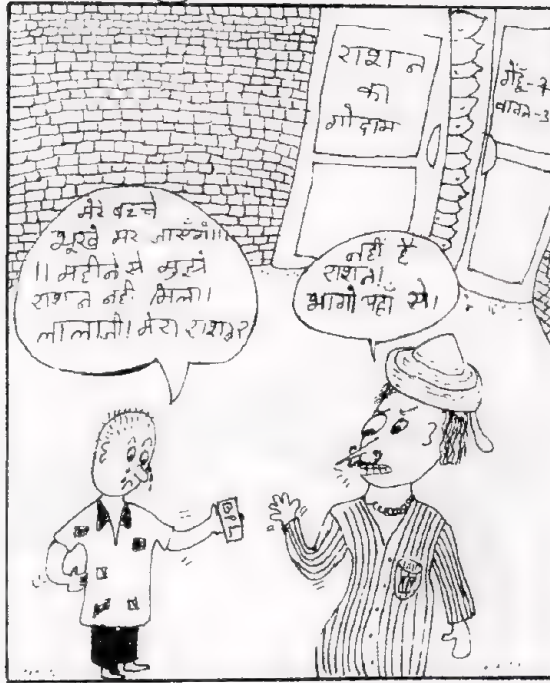 राशन
का
गोदाम
गेहूँ-7
चावल-3
मेरे बच्चे
भूखे मर जाएँगे।।।
।। महीने से मुझे
राशन नहीं मिला।
लालाजी! मेरा राशन?
नहीं है
राशन।
भागो यहाँ से।